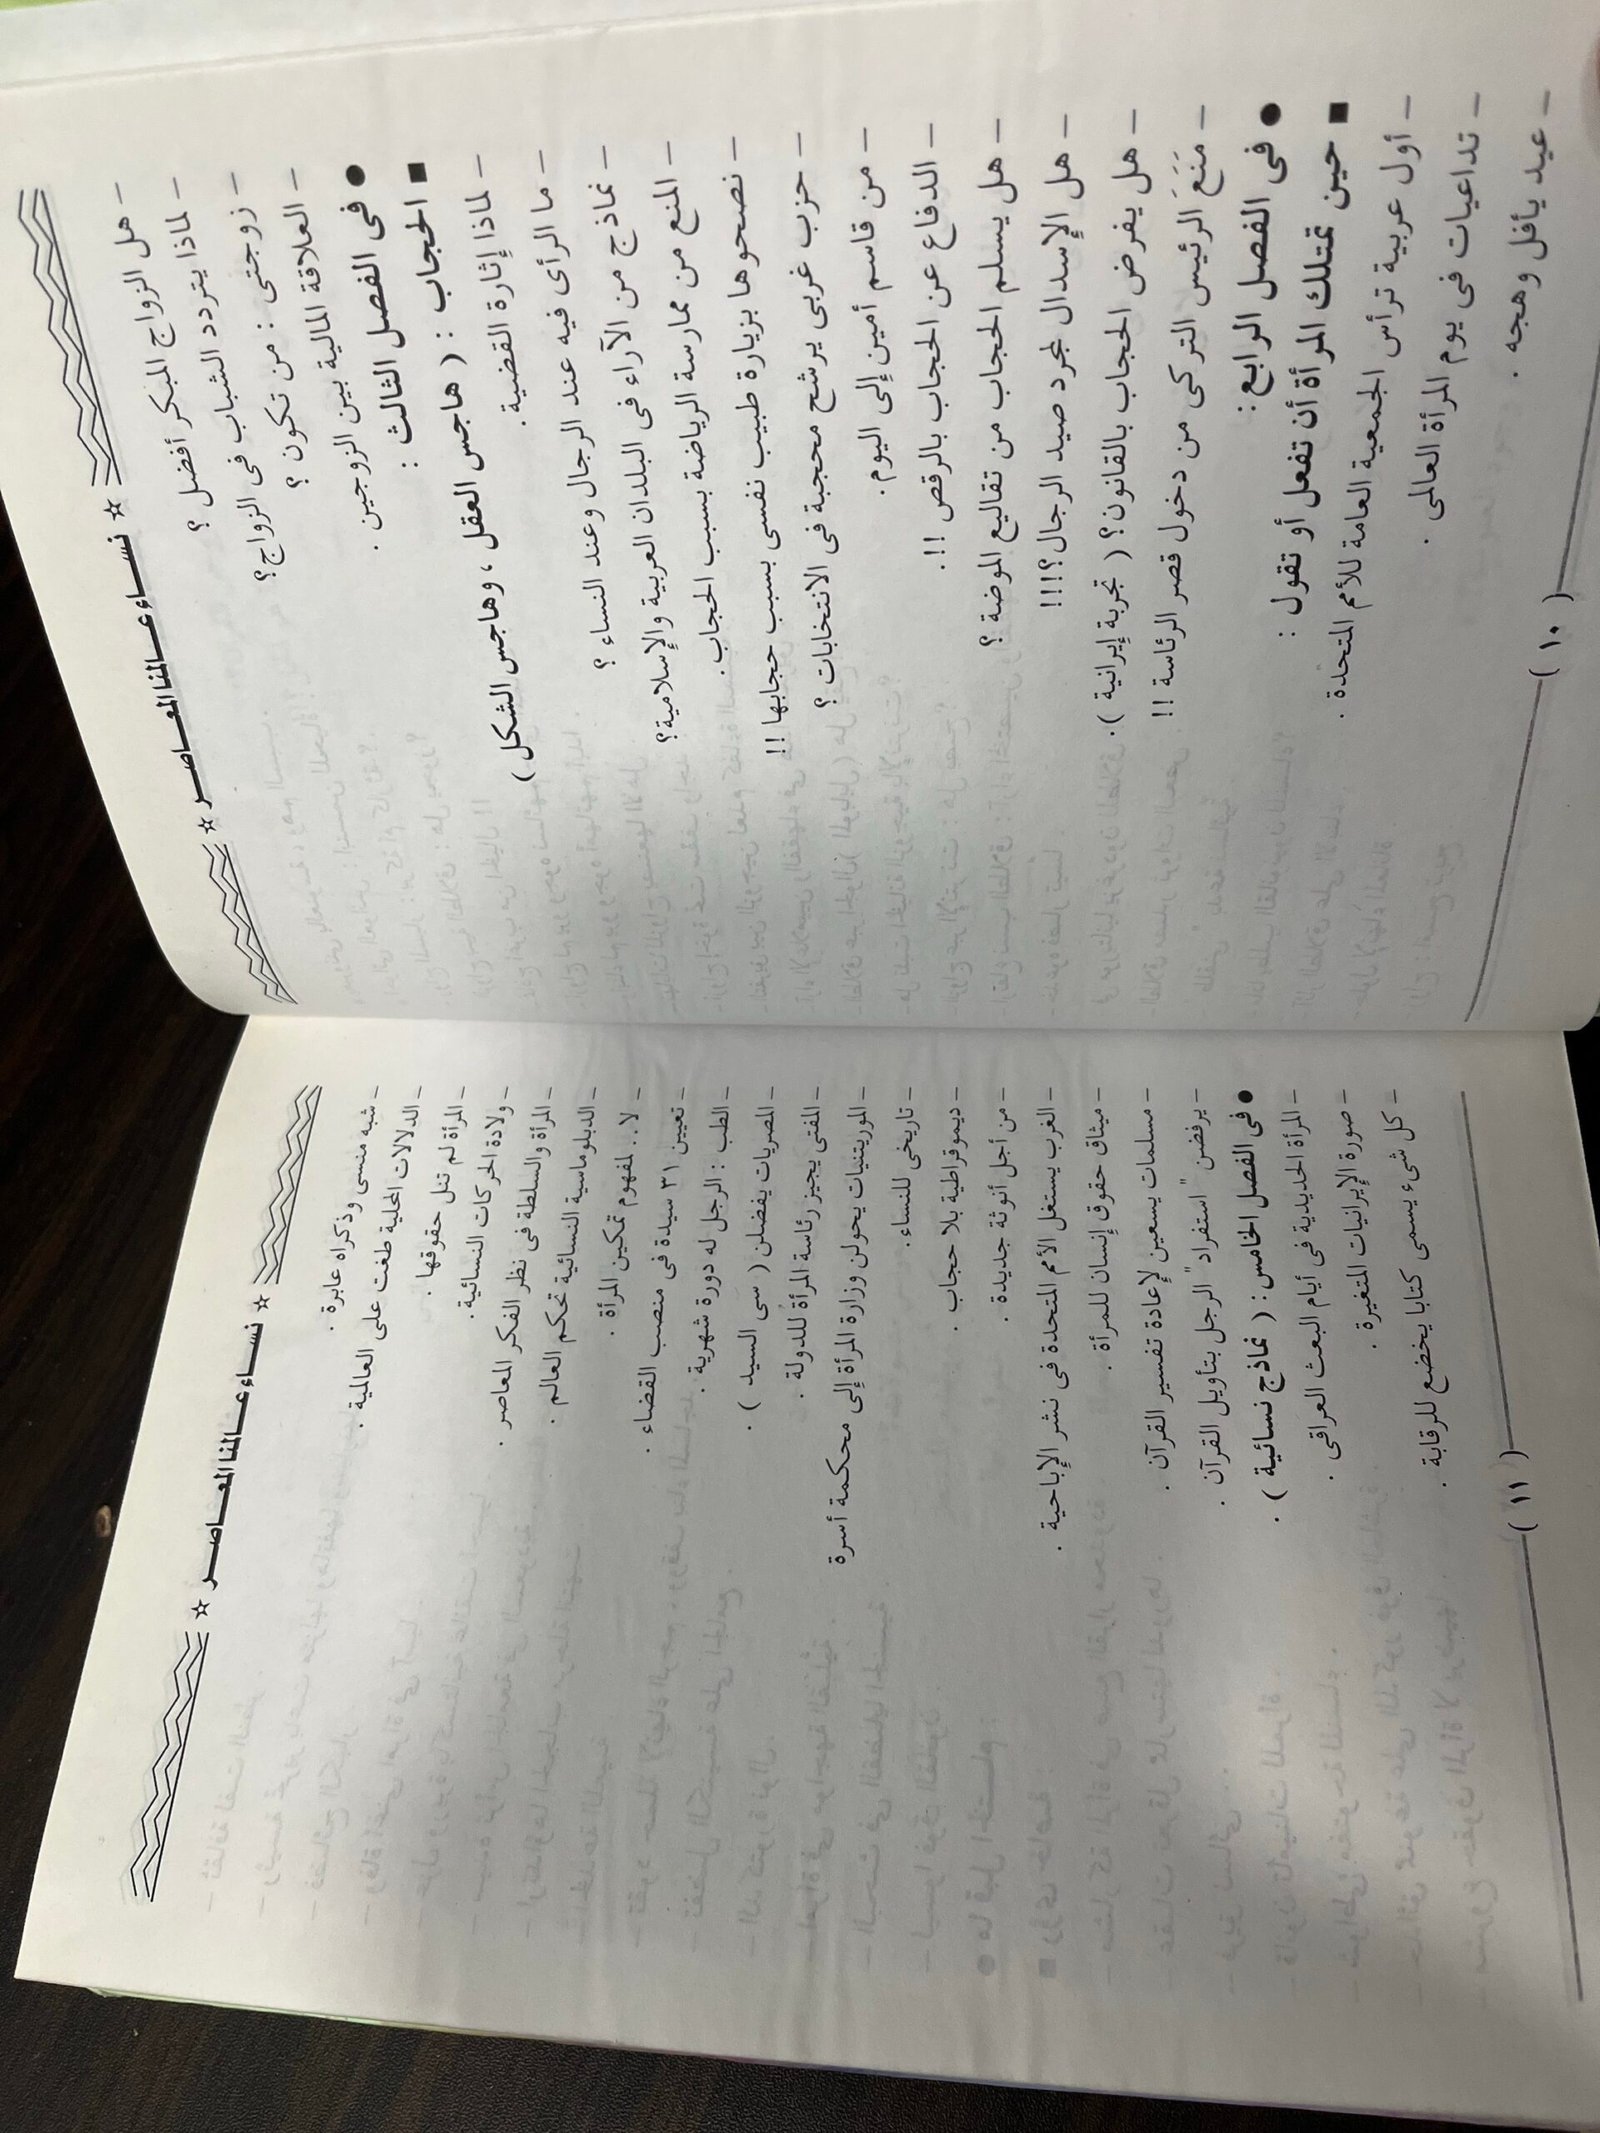 ☆ نســاء عــالمنا المعــاصــر ☆
– هل الزواج المبكر أفضل ؟
– لماذا يتردد الشباب فى الزواج؟
– زوجتى : من تكون ؟
– العلاقة المالية بين الزوجين .
● فى الفصل الثالث :
■ الحجاب : ( هاجس العقل ، وهاجس الشكل )
– لماذا إثارة القضية .
– ما الرأى فيه عند الرجال وعند النساء ؟
– نماذج من الآراء فى البلدان العربية والإسلامية؟
– المنع من ممارسة الرياضة بسبب الحجاب.
– نصحوها بزيارة طبيب نفسى بسبب حجابها !!
– حزب غربى يرشح محجبة فى الانتخابات ؟
– من قاسم أمين إلى اليوم.
– الدفاع عن الحجاب بالرقص !!.
– هل يسلم الحجاب من تقاليع الموضة ؟
– هل الإسدال لمجرد صيد الرجال؟!!!
– هل يفرض الحجاب بالقانون؟ ( تجربة إيرانية ).
– مَنَعَ الرئيس التركى من دخول قصر الرئاسة !!
● فى الفصل الرابع :
■ حين تمتلك المرأة أن تفعل أو تقول :
– أول عربية ترأس الجمعية العامة للأمم المتحدة .
– تداعيات فى يوم المرأة العالمى .
– عيد يأفل وهجه .
( ١٠ )
☆ نســاء عــالمنا المعــاصــر ☆
– شبه منسى وذكراه عابرة .
– الدلالات المحلية طغت على العالمية .
– المرأة لم تنل حقوقها .
– ولادة الحركات النسائية .
– المرأة والسلطة فى نظر الفكر المعاصر .
– الدبلوماسية النسائية تحكم العالم .
– لا.. لمفهوم تمكين المرأة .
– تعيين ٣١ سيدة فى منصب القضاء .
– الطب : الرجل له دورة شهرية .
– المصريات يفضلن ( سَى السيد ) .
– المفتى يجيز رئاسة المرأة للدولة .
– الموريتنيات يحولن وزارة المرأة إلى محكمة أسرة
– تاريخى للنساء.
– ديموقراطية بلا حجاب .
– من أجل أنوثة جديدة .
– الغرب يستغل الأمم المتحدة فى نشر الإباحية .
– ميثاق حقوق إنسان للمرأة .
– مسلمات يسعين لإعادة تفسير القرآن .
– يرفضن "استفراد" الرجل بتأويل القرآن .
● فى الفصل الخامس : ( نماذج نسائية ) .
– المرأة الحديدية فى أيام البعث العراقى .
– صورة الإيرانيات المتغيرة .
– كل شىء يسمى كتابا يخضع للرقابة .
( ١١ )